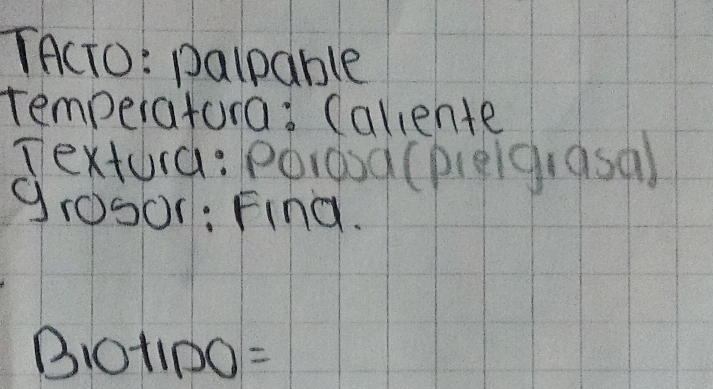 TACTO: palpable
Temperatura: Caliente
Textura: Porosa (piel grasa)
grosor: Fina.
Biotipo=